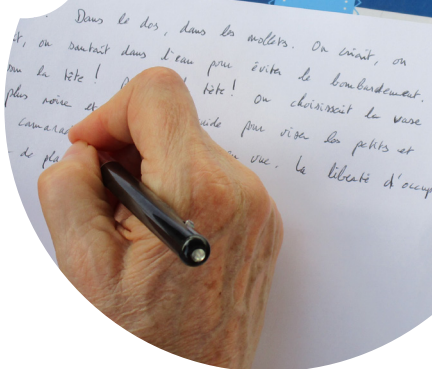 Dans le dos, dans les mollets. On criait, on
on sautait dans l'eau pour éviter le bombardement.
la tête ! tête ! On choisissait la vase
plus noire et pour viser les petits et
de vue. La liberté d'occup